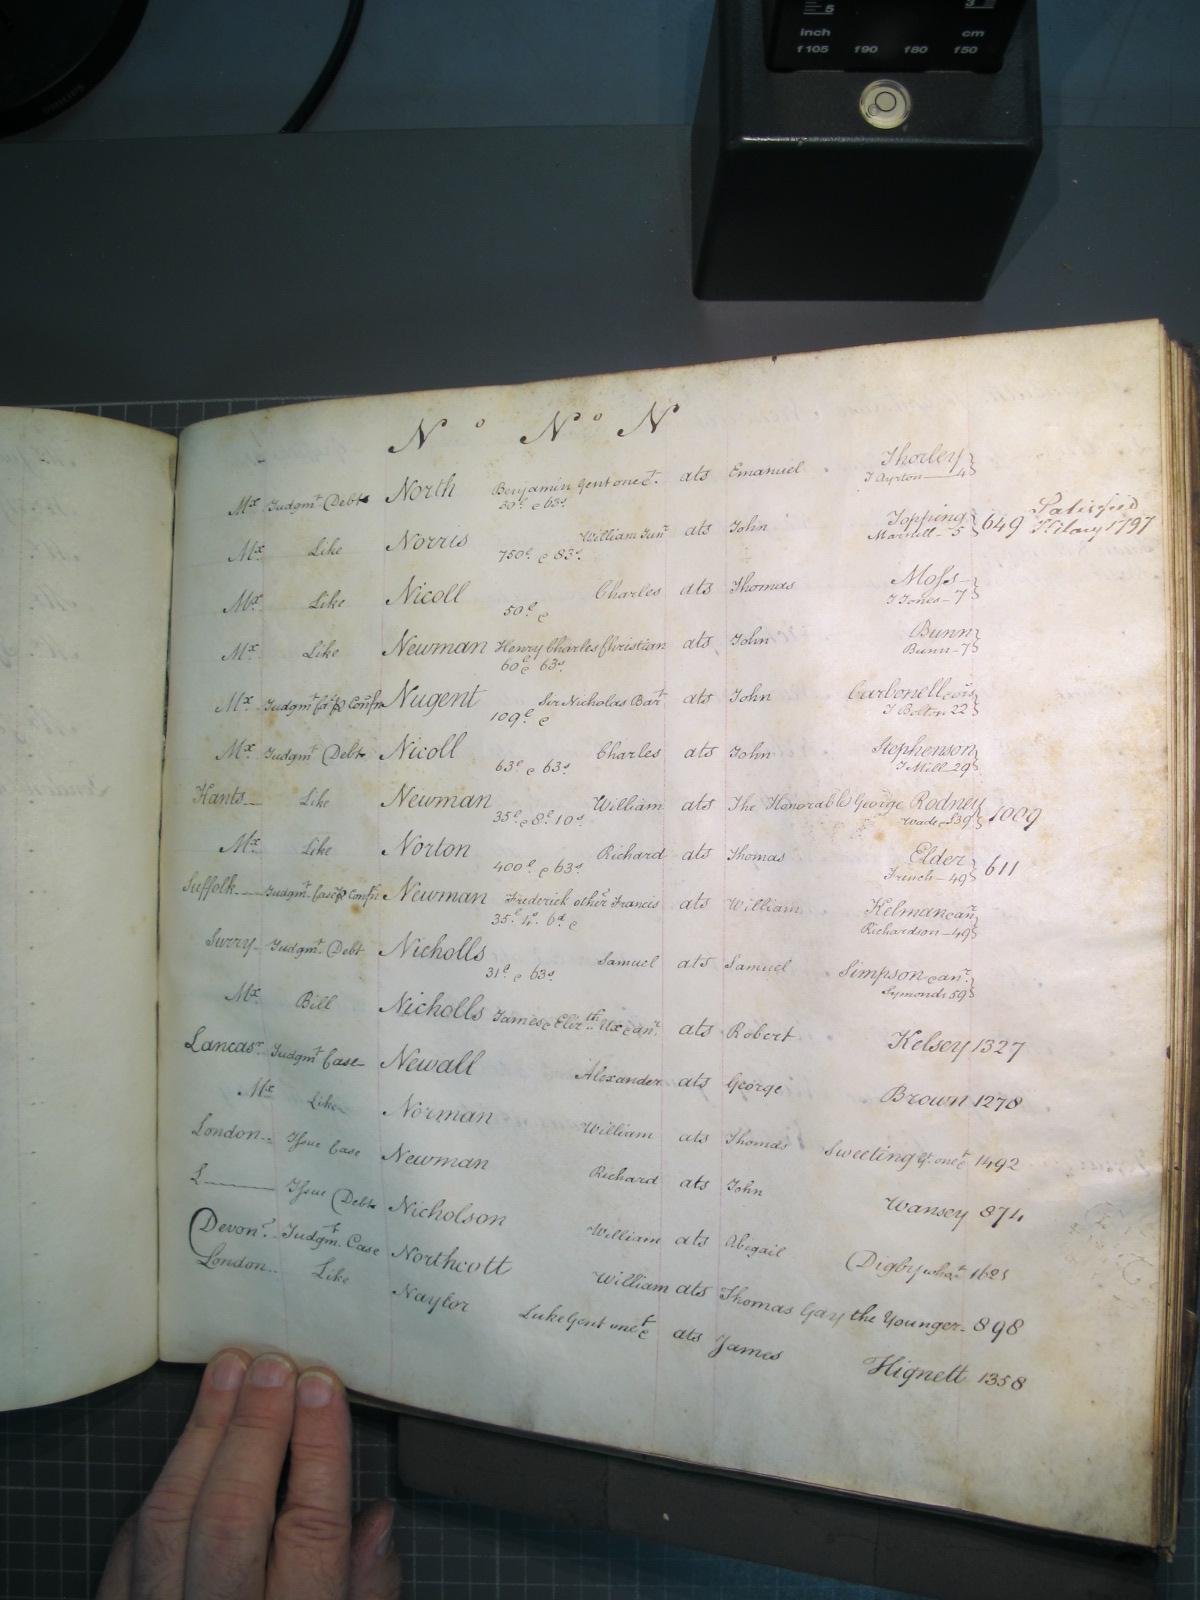 5 3
inch cm
f105 f90 f80 f50
N o N o N
Mx Judgmt Debt North Benjamin Gent one &ct. ats Emanuel Thorley
30£ & 63s. T Ayrton 4
Mx Like Norris William Junr ats John Topping 649 Satisfied
750£ & 83s. Martell 5 Hilary 1797
Mx Like Nicoll Charles ats Thomas Moss
50£ & T Jones 7
Mx Like Newman Henry Charles Christian ats John Bunn
60£ & 63s Bunn 7
Mx Judgmt Ca & p Confn Nugent Sir Nicholas Bart ats John Carbonell
109£ & T Bolton 22
Mx Judgmt Debt Nicoll Charles ats John Stephenson
63£ & 63s. T Mill 29
Hants Like Newman William ats The Honorable George Rodney 1009
35£ & 8£ 10s. Wade 39
Mx Like Norton Richard ats Thomas Elder 611
400£ & 63s. French 49
Suffolk Judgmt Case p Confn Newman Frederick otherw Francis ats William Kelman & anr
35£ 4s. 6d & Richardson 49
Surry Judgmt Debt Nicholls Samuel ats Samuel Simpson & anr
31£ & 63s. Symonds 59
Mx Bill Nicholls James & Elizth Ux & anr ats Robert Kelsey 1327
Lancasr Judgmt Case Newall Alexander ats George Brown 1278
Mx Like Norman William ats Thomas Sweeting Gt one &ct 1492
London Issue Case Newman Richard ats John Wansey 874
L Issue Debt Nicholson William ats Abigail Digby 1625
Devon Judgmt Case Northcott William ats Thomas Gay the Younger 898
London Like Naylor Luke Gent one &ct ats James Hignett 1358